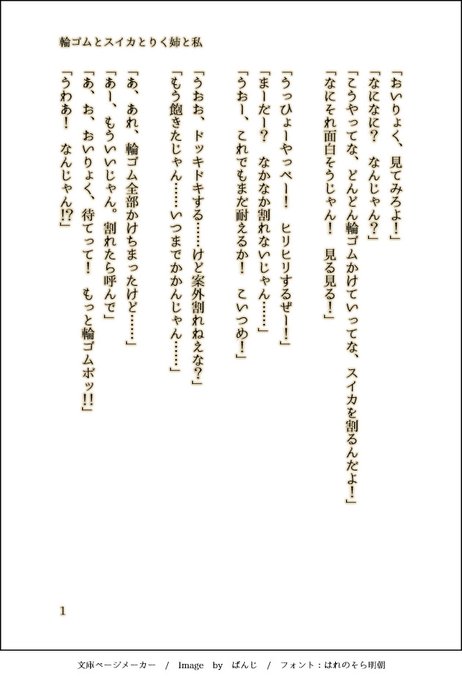 輪ゴムとスイカとりく姉と私
「おいりょく、見てみろよ！」
「なになに？　なんじゃん？」
「こうやってな、どんどん輪ゴムかけていってな、スイカを割るんだよ！」
「なにそれ面白そうじゃん！　見る見る！」
「うっひょーやっべー！　ヒリヒリするぜー！」
「まーだー？　なかなか割れないじゃん……」
「うおー、これでもまだ耐えるか！　こいつめ！」
「うおお、ドッキドキする……けど案外割れねえな？」
「もう飽きたじゃん……いつまでかかんじゃん……」
「あ、あれ、輪ゴム全部かけちまったけど……」
「あー、もういいじゃん。割れたら呼んで」
「あ、お、おいりょく、待てって！　もっと輪ゴムボッ!!」
「うわあ！　なんじゃん!?」
1
文庫ページメーカー　/　Image　by　ばんじ　/　フォント：はれのそら明朝